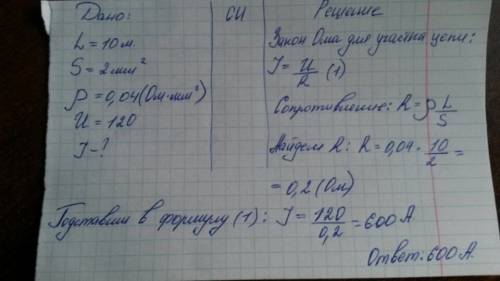 Дано:
L = 10 м.
S = 2 мм²
ρ = 0,04 (Ом·мм²)
U = 120
J - ?
СИ
Решение
Закон Ома для участка цепи:
J = U/R (1)
Сопротивление: R = ρ L/S
Найдем R: R = 0,04 · 10/2 =
= 0,2 (Ом)
Подставим в формулу (1): J = 120/0,2 = 600 А
Ответ: 600 А.